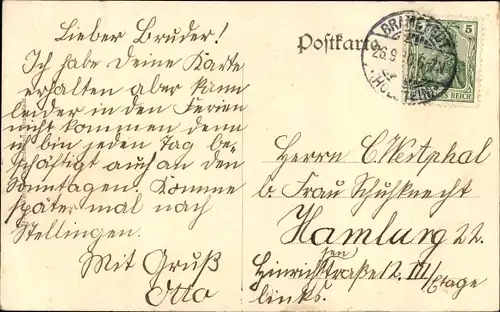 Lieber Bruder!
Ich habe Deine Karte
erhalten aber kann
leider in den Ferien
nicht kommen denn
ich bin jeden Tag be-
schäftigt auch an den
Sonntagen. Komme
später mal nach
Stellingen.
Mit Gruß
Otto
Postkarte
BRAMSTEDT
26.9.
(HOLSTEIN)
5
REICH
Herrn C. Westphal
b. Frau Schuhknecht
Hamburg 22.
Hinrichsenstraße 12. III/Etage
links.